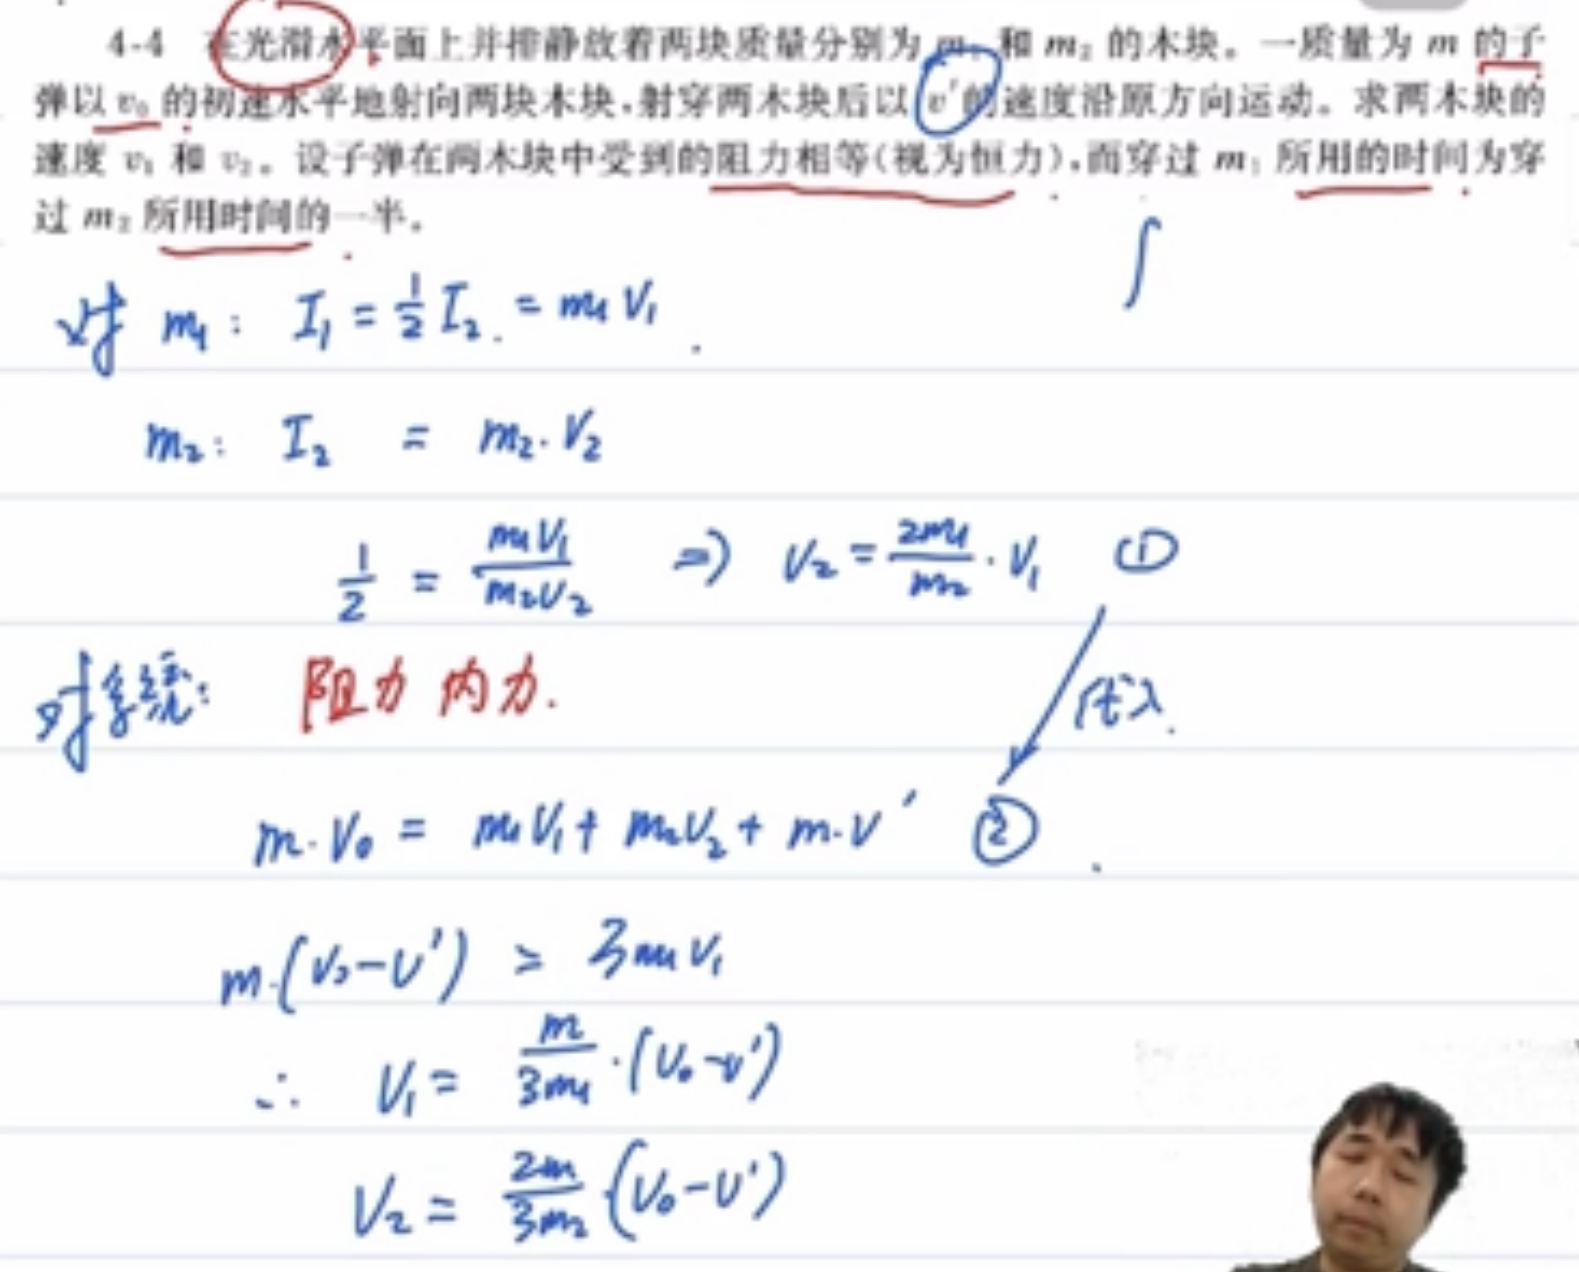 4-4 在光滑水平面上并排静放着两块质量分别为 m₁ 和 m₂ 的木块。一质量为 m 的子
弹以 v₀ 的初速水平地射向两块木块,射穿两木块后以 v′ 的速度沿原方向运动。求两木块的
速度 v₁ 和 v₂。设子弹在两木块中受到的阻力相等(视为恒力),而穿过 m₁ 所用的时间为穿
过 m₂ 所用时间的一半。
∫
对 m₁: I₁ = 1/2 I₂ = m₁V₁
m₂: I₂ = m₂·V₂
1/2 = m₁V₁/m₂V₂ ⇒ V₂ = 2m₁/m₂ · V₁ ①
对系统: 阻力 内力.
代入.
m·V₀ = m₁V₁ + m₂V₂ + m·V′ ②
m·(V₀-V′) = 3m₁V₁
∴ V₁ = m/3m₁ ·(V₀-V′)
V₂ = 2m/3m₂ (V₀-V′)